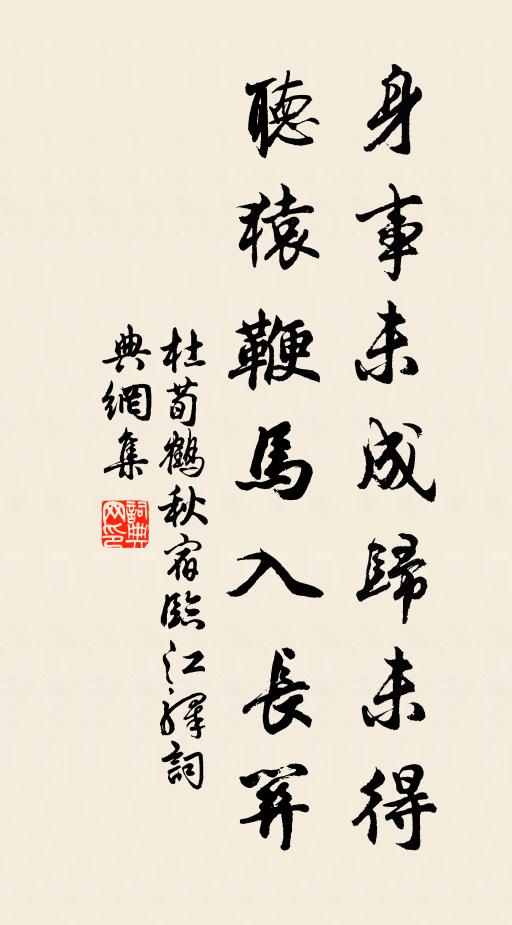 身事未成歸未得
聽猿鞭馬入長關
杜荀鶴秋宿臨江驛詞
典網集
詞典网印